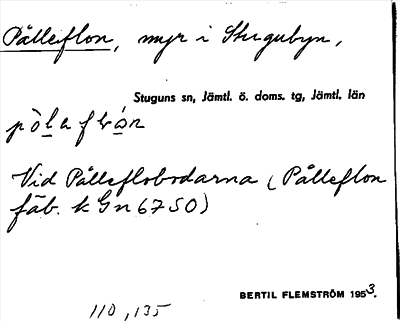 Pålleflon, myr i Stugubyn,
Stuguns sn, Jämtl. ö. doms. tg, Jämtl. län
Vid Pålleflobodarna (Pålleflon
fäb. k Gn 6750)
BERTIL FLEMSTRÖM 1953.
110, 135